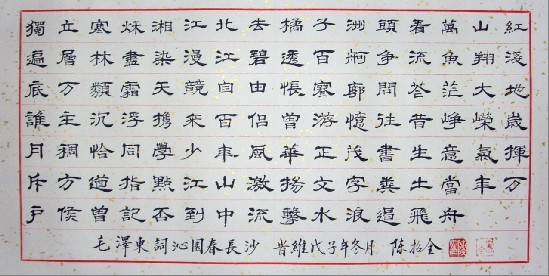 獨立寒秌湘江北去橘子洲頭看萬山紅
遍層林盡染漫江碧透百舸争流魚翔淺
底万類霜天競自由悵寥廓問苍茫大地
誰主沉浮携來百侣曾游憶往昔崢嶸歲
月稠恰同學少年風華正茂書生意氣揮
斥方遒指點江山激揚文字糞土當年万
户侯曾記否到中流擊水浪遏飛舟
毛澤東詞沁園春長沙 旹維戊子年冬月 陈拾全